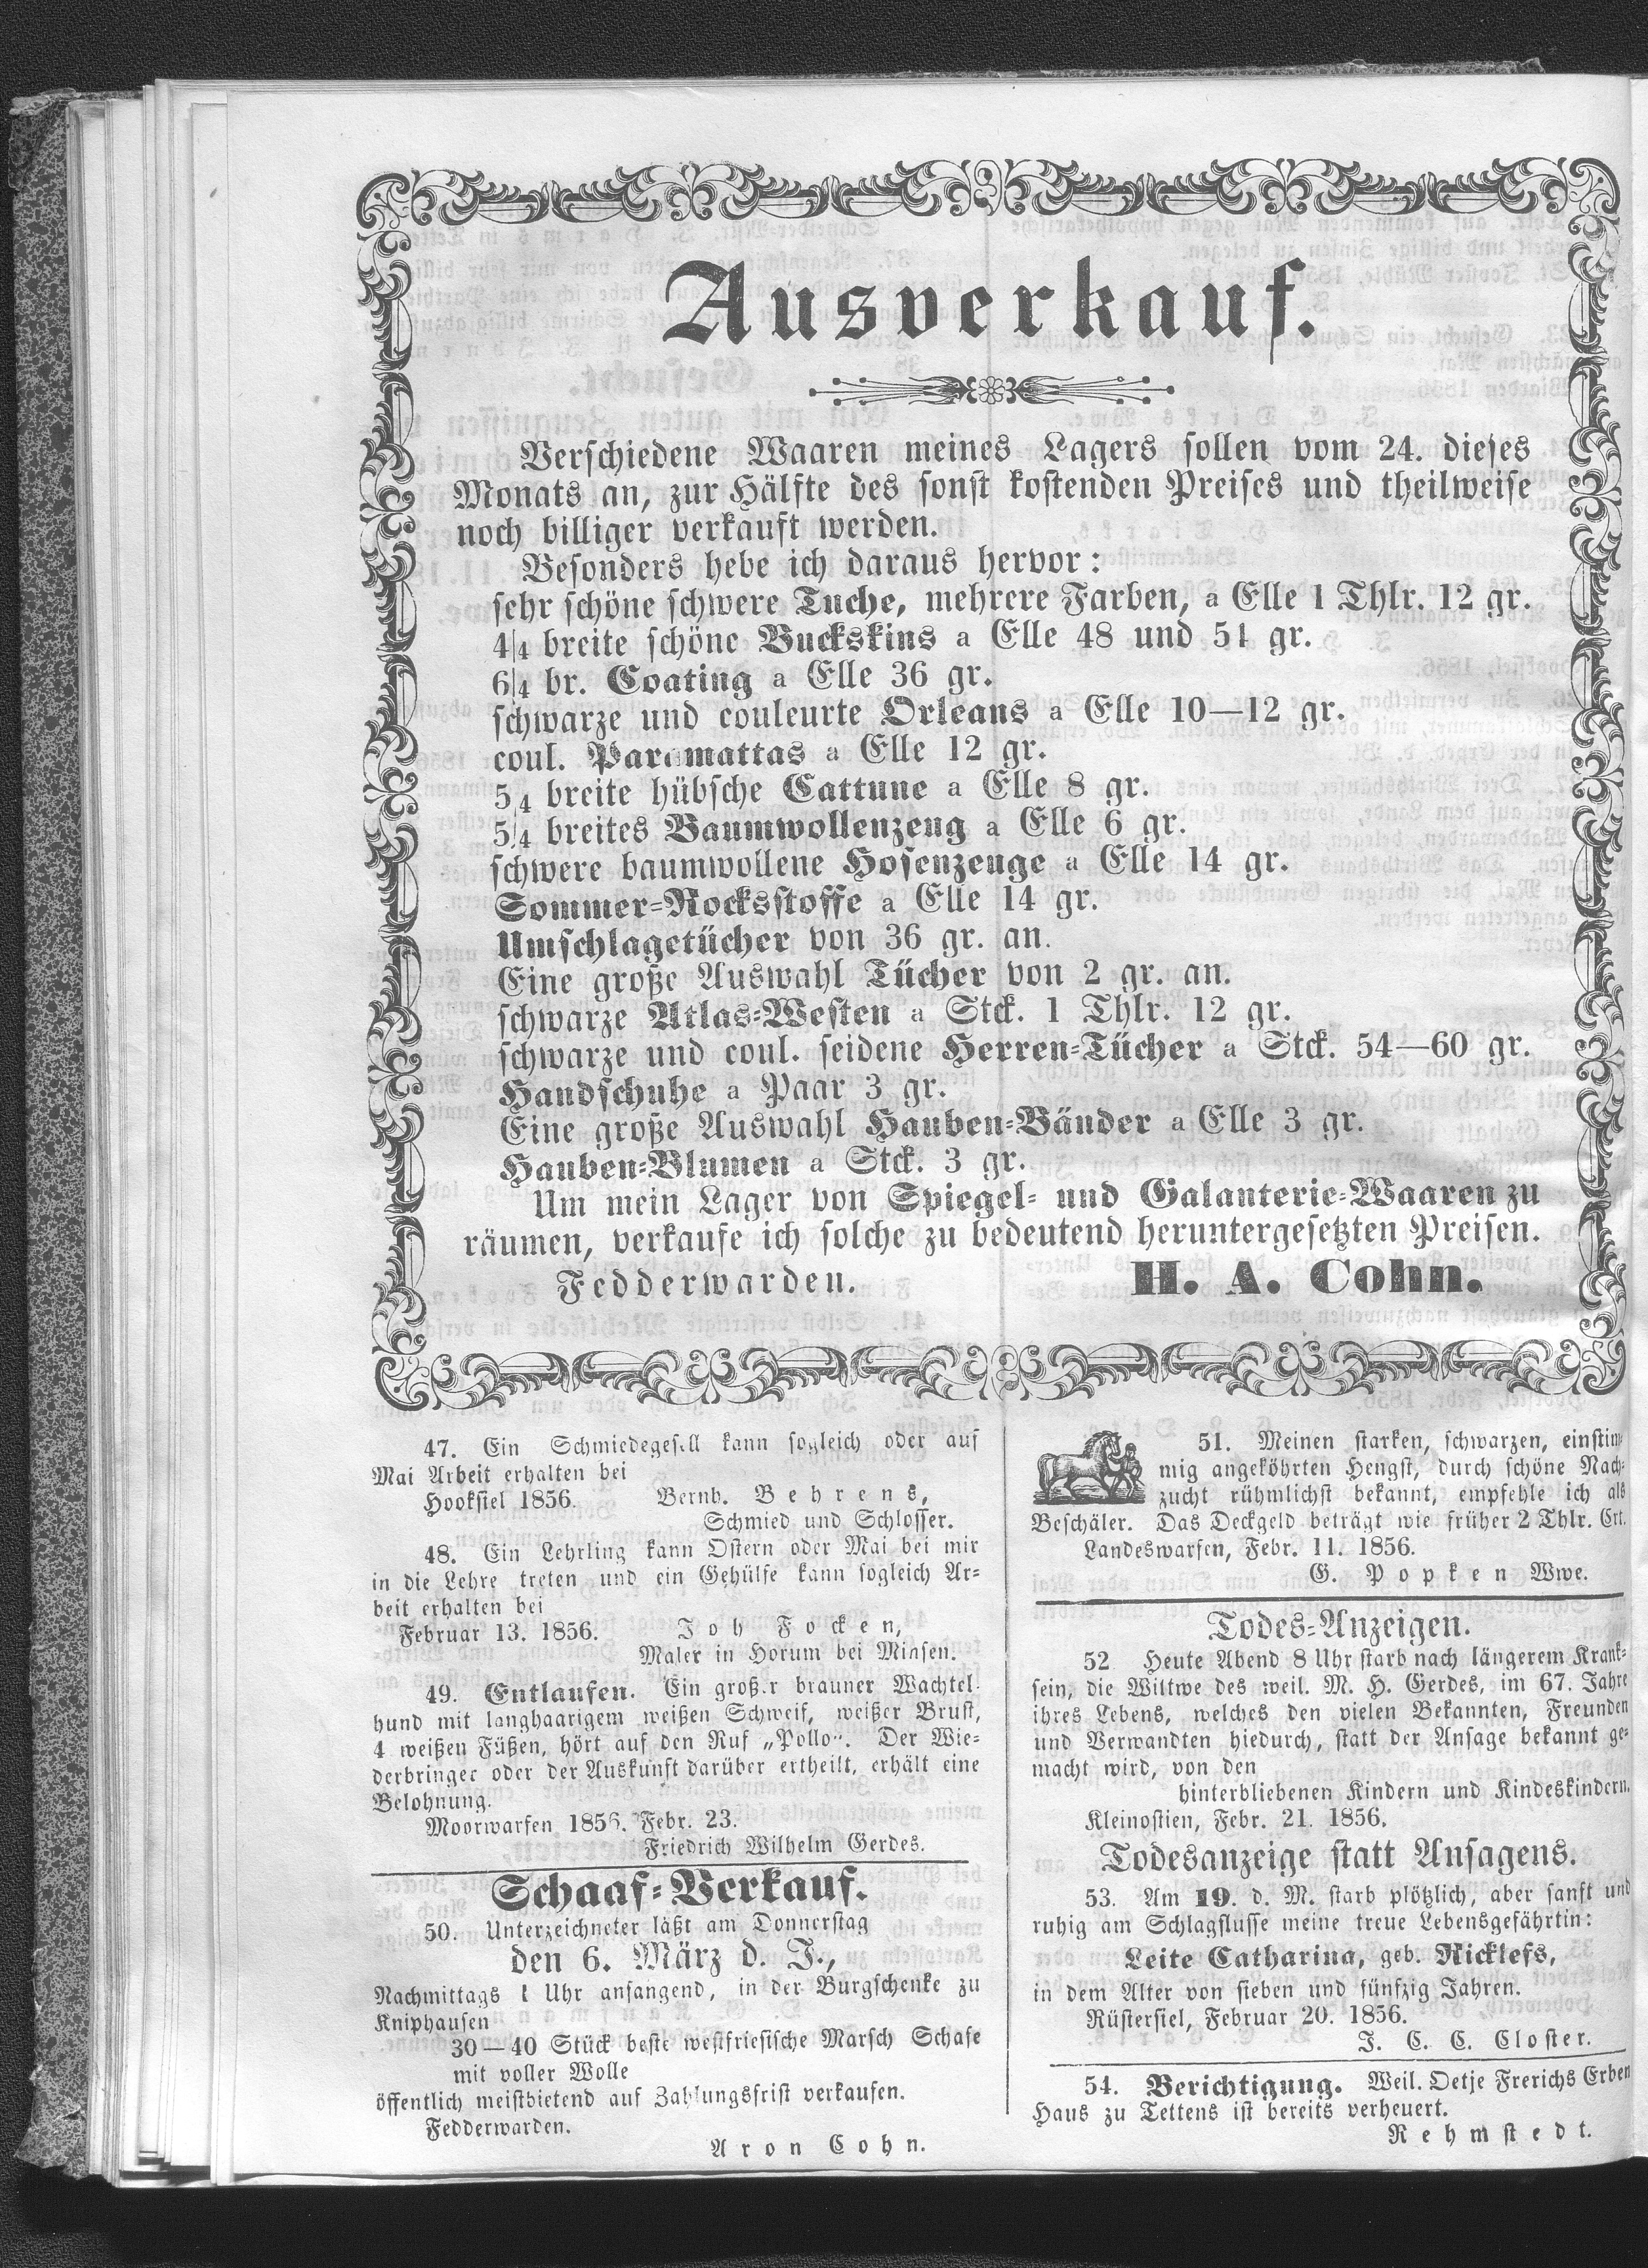 Ausverkauf.
Verschiedene Waaren meines Lagers sollen vom 24. dieses
Monats an, zur Hälfte des sonst kostenden Preises und theilweise
noch billiger verkauft werden.
Besonders hebe ich daraus hervor:
sehr schöne schwere Tuche, mehrere Farben, a Elle 1 Thlr. 12 gr.
4/4 breite schöne Buckskins a Elle 48 und 51 gr.
6/4 br. Coating a Elle 36 gr.
schwarze und couleurte Orleans a Elle 10—12 gr.
coul. Paramattas a Elle 12 gr.
5/4 breite hübsche Cattune a Elle 8 gr.
5/4 breites Baumwollenzeug a Elle 6 gr.
schwere baumwollene Hosenzeuge a Elle 14 gr.
Sommer-Rocksstoffe a Elle 14 gr.
Umschlagetücher von 36 gr. an.
Eine große Auswahl Tücher von 2 gr. an.
schwarze Atlas-Westen a Stck. 1 Thlr. 12 gr.
schwarze und coul. seidene Herren-Tücher a Stck. 54—60 gr.
Handschuhe a Paar 3 gr.
Eine große Auswahl Hauben-Bänder a Elle 3 gr.
Hauben-Blumen a Stck. 3 gr.
Um mein Lager von Spiegel- und Galanterie-Waaren zu
räumen, verkaufe ich solche zu bedeutend heruntergesetzten Preisen.
Fedderwarden. H. A. Cohn.
47. Ein Schmiedegesell kann sogleich oder auf
Mai Arbeit erhalten bei
Hooksiel 1856. Bernh. Behrens,
Schmied und Schlosser.
48. Ein Lehrling kann Ostern oder Mai bei mir
in die Lehre treten und ein Gehülfe kann sogleich Ar-
beit erhalten bei
Februar 13. 1856. Joh Focken,
Maler in Horum bei Minsen.
49. Entlaufen. Ein großer brauner Wachtel-
hund mit langhaarigem weißen Schweif, weißer Brust,
4 weißen Füßen, hört auf den Ruf „Pollo“. Der Wie-
derbringer oder der Auskunft darüber ertheilt, erhält eine
Belohnung.
Moorwarfen 1856. Febr. 23.
Friedrich Wilhelm Gerdes.
Schaaf-Verkauf.
50. Unterzeichneter läßt am Donnerstag
den 6. März d. J.,
Nachmittags 1 Uhr anfangend, in der Burgschenke zu
Kniphausen
30—40 Stück beste westfriesische Marsch Schafe
mit voller Wolle
öffentlich meistbietend auf Zahlungsfrist verkaufen.
Fedderwarden.
Aron Cohn.
51. Meinen starken, schwarzen, einstim-
mig angeköhrten Hengst, durch schöne Nach-
zucht rühmlichst bekannt, empfehle ich als
Beschäler. Das Deckgeld beträgt wie früher 2 Thlr. Crt.
Landeswarfen, Febr. 11. 1856.
G. Popken Wwe.
Todes-Anzeigen.
52 Heute Abend 8 Uhr starb nach längerem Krank-
sein, die Wittwe des weil. M. H. Gerdes, im 67. Jahre
ihres Lebens, welches den vielen Bekannten, Freunden
und Verwandten hiedurch, statt der Ansage bekannt ge-
macht wird, von den
hinterbliebenen Kindern und Kindeskindern.
Kleinostien, Febr. 21. 1856.
Todesanzeige statt Ansagens.
53. Am 19. d. M. starb plötzlich, aber sanft und
ruhig am Schlagflusse meine treue Lebensgefährtin:
Leite Catharina, geb. Ricklefs,
in dem Alter von sieben und fünfzig Jahren.
Rüstersiel, Februar 20. 1856.
J. C. C. Closter.
54. Berichtigung. Weil. Oetje Frerichs Erben
Haus zu Tettens ist bereits verheuert.
Rehmstedt.